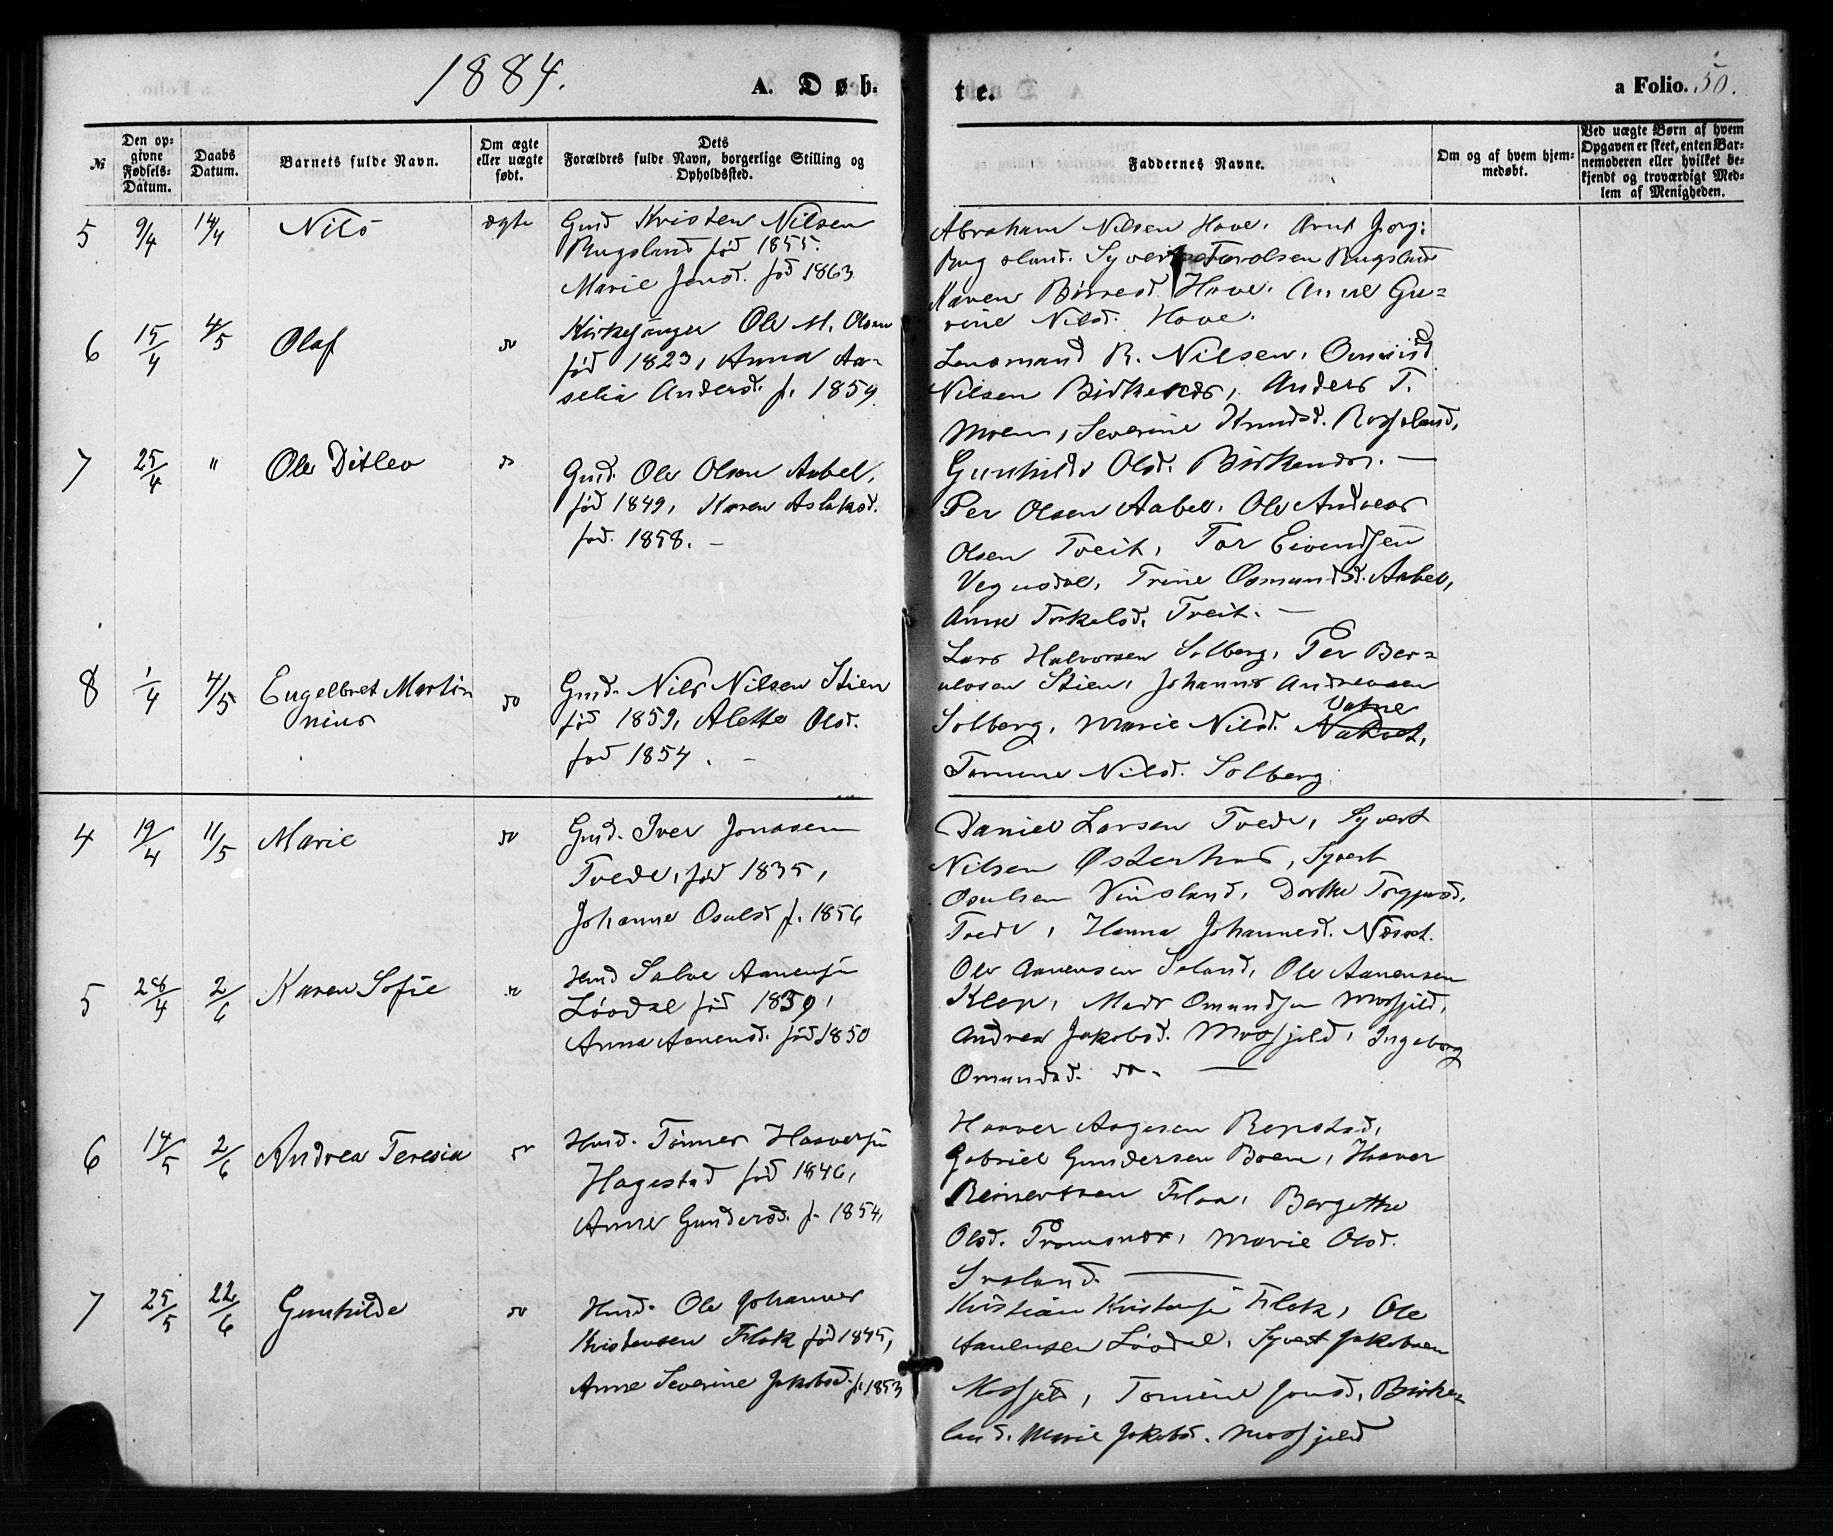 1884.
A. Døb-
te.
a Folio. 50.
№
Den op-
givne
Fødsels-
Datum.
Daabs
Datum.
Barnets fulde Navn.
Om ægte
eller uægte
født.
Dets
Forældres fulde Navn, borgerlige Stilling og
Opholdssted.
Faddernes Navne.
Om og af hvem hjem-
medøbt.
Ved uægte Børn af hvem
Opgaven er skeet, enten Bar-
nemoderen eller hvilket be-
kjendt og troværdigt Med-
lem af Menigheden.
5 9/4 14/4 Nils ægte
Gmd Kristen Nilsen
Rugsland fød 1855.
Marie Jensd. fød 1863
Abraham Nilsen Hove. Arnt Jørg:
Rugsland. Syvert Tarolsen Rugsland
Karen Børresd. Hove. Anne Gu=
rine Nilsd. Hove.
6 15/4 4/5 Olaf do
Kirkesanger Ole M. Olsen
fød 1823, Anna Aa-
selia Andersd. f. 1859
Lensmand R. Nilsen,
Nilsen Birkenes, Anders T.
Moen, Severine Knudsd. Rosseland,
Gunhilde Olsd. Birkenes. —
7 25/4 " Ole Ditlev do
Gmd. Ole Olsen Aabel,
fød 1849, Karen Aslaksd.
fød. 1858. —
Per Olsen Aabel. Ole Andreas
Olsen Tveit, Tor Eivendsen
Vegusdal, Trine Osmundsd. Aabel,
Anne Torkelsd. Tveit. —
8 1/4 4/5 Engelbret Martin
nius do
Gmd. Nils Nilsen Stien
fød 1859, Alette Olsd.
fød 1854. —
Lars Halvorsen Solberg, Per Ber=
ulvsen Stien, Johannes Andreassen
Vatne
Solberg, Marie Nilsd.
Tomine Nilsd. Solberg.
4 19/4 11/5 Marie do
Gmd. Iver Jonassen
Tvede, fød 1835,
Johanne Osulsd f. 1856
Daniel Larsen Tvede, Syvert
Nilsen Østerhus, Syvert
Osulsen Vinsland, Dorthe Torgjusd.
Tvede, Hanna Johannesd. Næset.
5 28/4 2/6 Karen Sofie do
Hmd Salve Aanensen
Løvdal fød 1839,
Anna Aanensd. fød 1850
Ole Aanensen Soland, Ole Aanensen
Klep, Mads Omundsen Mosfjeld,
Andrea Jakobsd. Mosfjeld, Ingeborg
Omundsd. do. —
6 14/5 2/6 Andrea Teresia do
Hmd. Tønnes Haaversen
Hagestad fød 1846,
Anne Gundersd. f. 1854,
Haaver Aagesen Repstad,
Gabriel Gundersen Boen, Haaver
Reinertsen Flaa, Bergitte
Olsd. Tromsnes, Marie Olsd.
7 25/5 22/6 Gunhilde do
Hmd. Ole Johannes
Kristensen Flak fød 1845,
Anne Severine Jakobsd. f. 1853
Kristian Kristensen Flak, Ole
Aanensen Løvdal, Syvert Jakobsen
Mosfjeld, Tomine Jonsd. Birke=
land. Marie Jakobsd. Mosfjeld